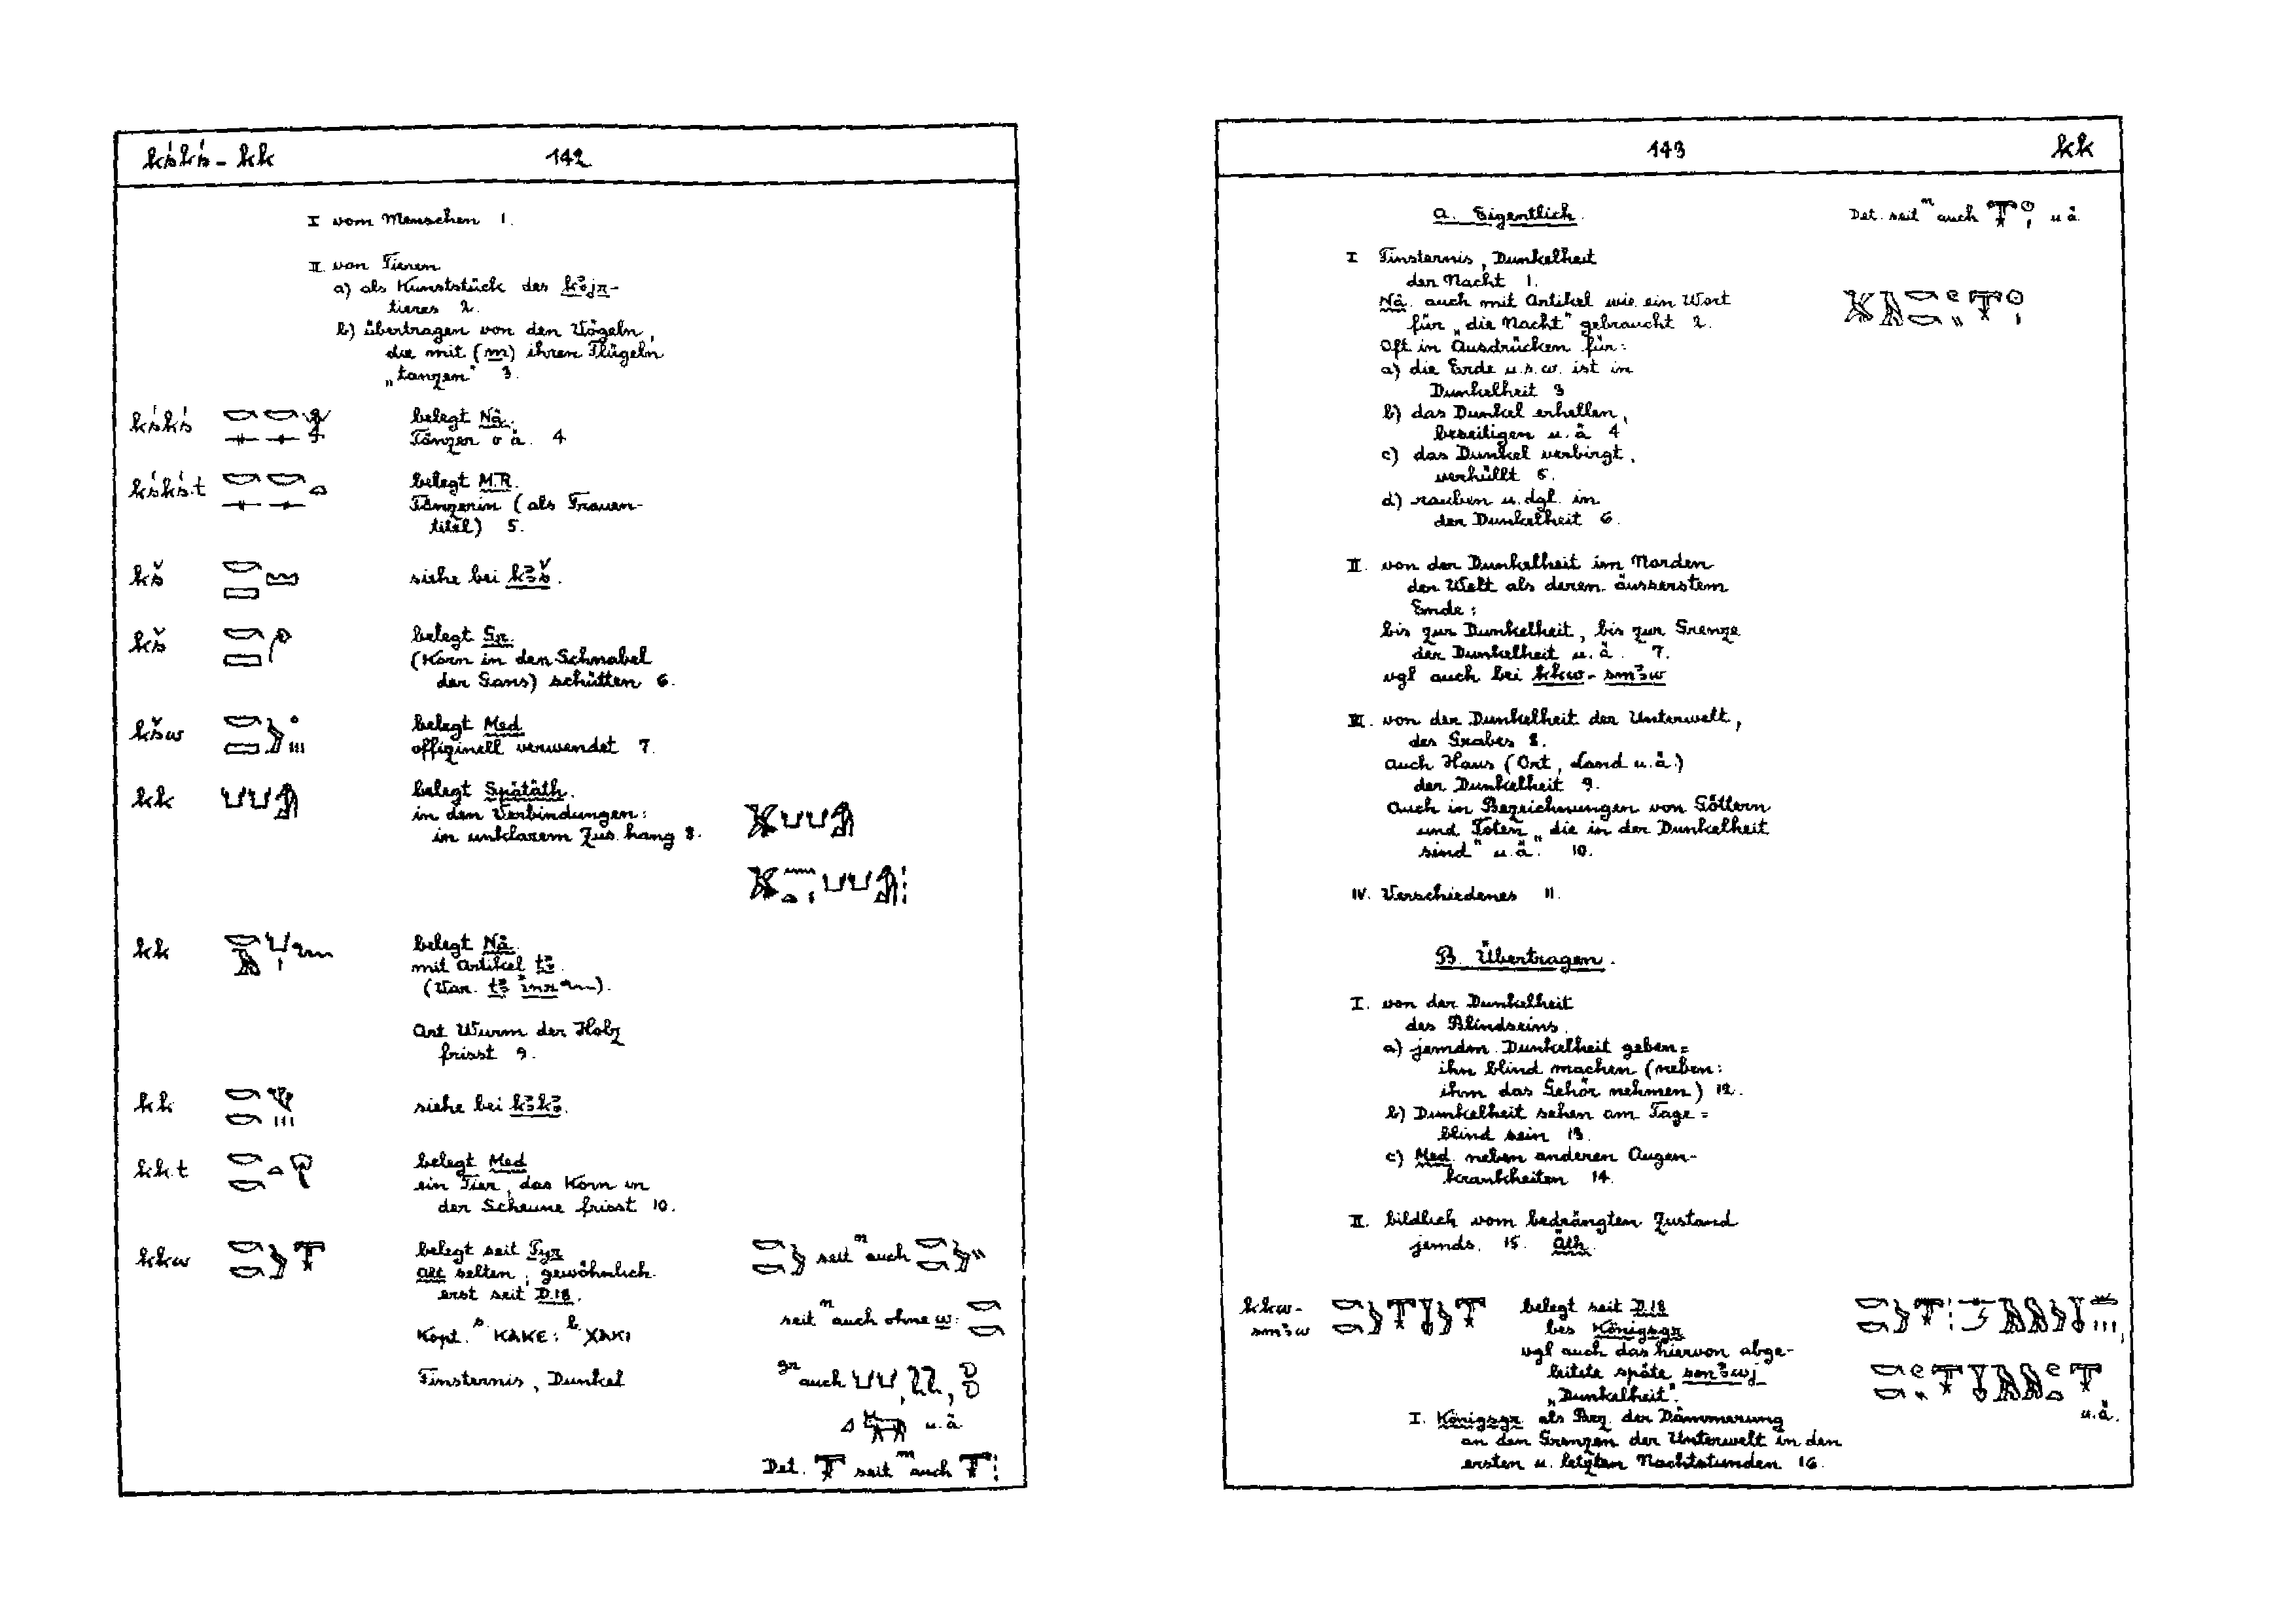 kśkś - kk 142
I vom Menschen 1.
II von Tieren
a) als Kunststück des kꜣjr-
tieres 2.
b) übertragen von den Vögeln,
die mit (m) ihren Flügeln
„tanzen" 3.
kśkś belegt Nä.
Tänzer o ä. 4
kśkś.t belegt M.R.
Tänzerin (als Frauen-
titel) 5.
kš siehe bei kꜣš.
kš belegt Gr.
(Korn in den Schnabel
der Gans) schütten 6.
kšw belegt Med
offizinell verwendet 7.
kk belegt Spätäth.
in den Verbindungen:
in unklarem Zus.hang 8.
kk belegt Nä.
mit Artikel tꜣ.
(Var. tꜣ inr).
Art Wurm der Holz
frisst 9.
kk siehe bei kꜣkꜣ.
kk.t belegt Med
ein Tier, das Korn in
der Scheune frisst 10.
kkw belegt seit Pyr
Alt selten; gewöhnlich
erst seit D.18.
seit n auch
seit n auch ohne w:
Kopt. s. ⲕⲁⲕⲉ: b. ⲭⲁⲕⲓ
Finsternis, Dunkel
gr auch
u.ä.
Det. seit m auch
143 kk
a. Eigentlich.
Det. seit n auch u ä.
I Finsternis, Dunkelheit
der Nacht 1.
Nä. auch mit Artikel wie ein Wort
für „die Nacht" gebraucht 2.
Oft in Ausdrücken für:
a) die Erde u.s.w. ist in
Dunkelheit 3
b) das Dunkel erhellen,
beseitigen u.ä 4
c) das Dunkel verbirgt,
verhüllt 5.
d) rauben u.dgl. in
der Dunkelheit 6.
II. von der Dunkelheit im Norden
der Welt als deren äusserstem
Ende:
bis zur Dunkelheit, bis zur Grenze
der Dunkelheit u.ä. 7.
vgl auch bei kkw-smꜣw
III. von der Dunkelheit der Unterwelt,
des Grabes 8.
Auch Haus (Ort, Land u.ä.)
der Dunkelheit 9.
Auch in Bezeichnungen von Göttern
und Toten „die in der Dunkelheit
sind" u.ä. 10.
IV. Verschiedenes 11.
B. Übertragen.
I. von der Dunkelheit
des Blindseins.
a) jemdm. Dunkelheit geben =
ihn blind machen (neben:
ihm das Gehör nehmen) 12.
b) Dunkelheit sehen am Tage =
blind sein 13.
c) Med. neben anderen Augen-
krankheiten 14.
II. bildlich vom bedrängten Zustand
jemds. 15. Äth.
kkw- belegt seit D.18
smꜣw bes Königsgr
vgl auch das hiervon abge-
leitete späte smꜣwj
„Dunkelheit".
u.ä.
I. Königsgr. als Bez. der Dämmerung
an den Grenzen der Unterwelt in den
ersten u. letzten Nachtstunden 16.